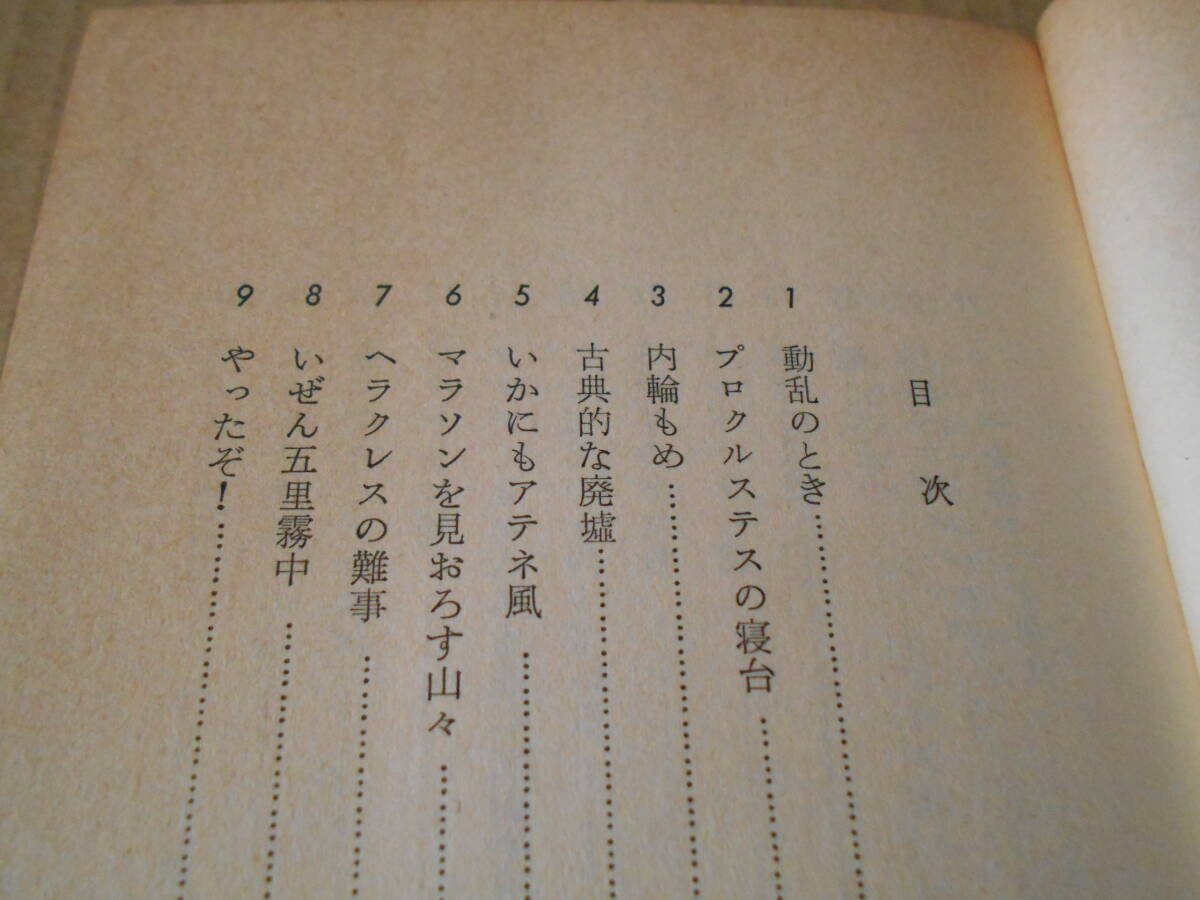 目次
1 動乱のとき
2 プロクルステスの寝台
3 内輪もめ
4 古典的な廃墟
5 いかにもアテネ風
6 マラソンを見おろす山々
7 ヘラクレスの難事
8 いぜん五里霧中
9 やったぞ!